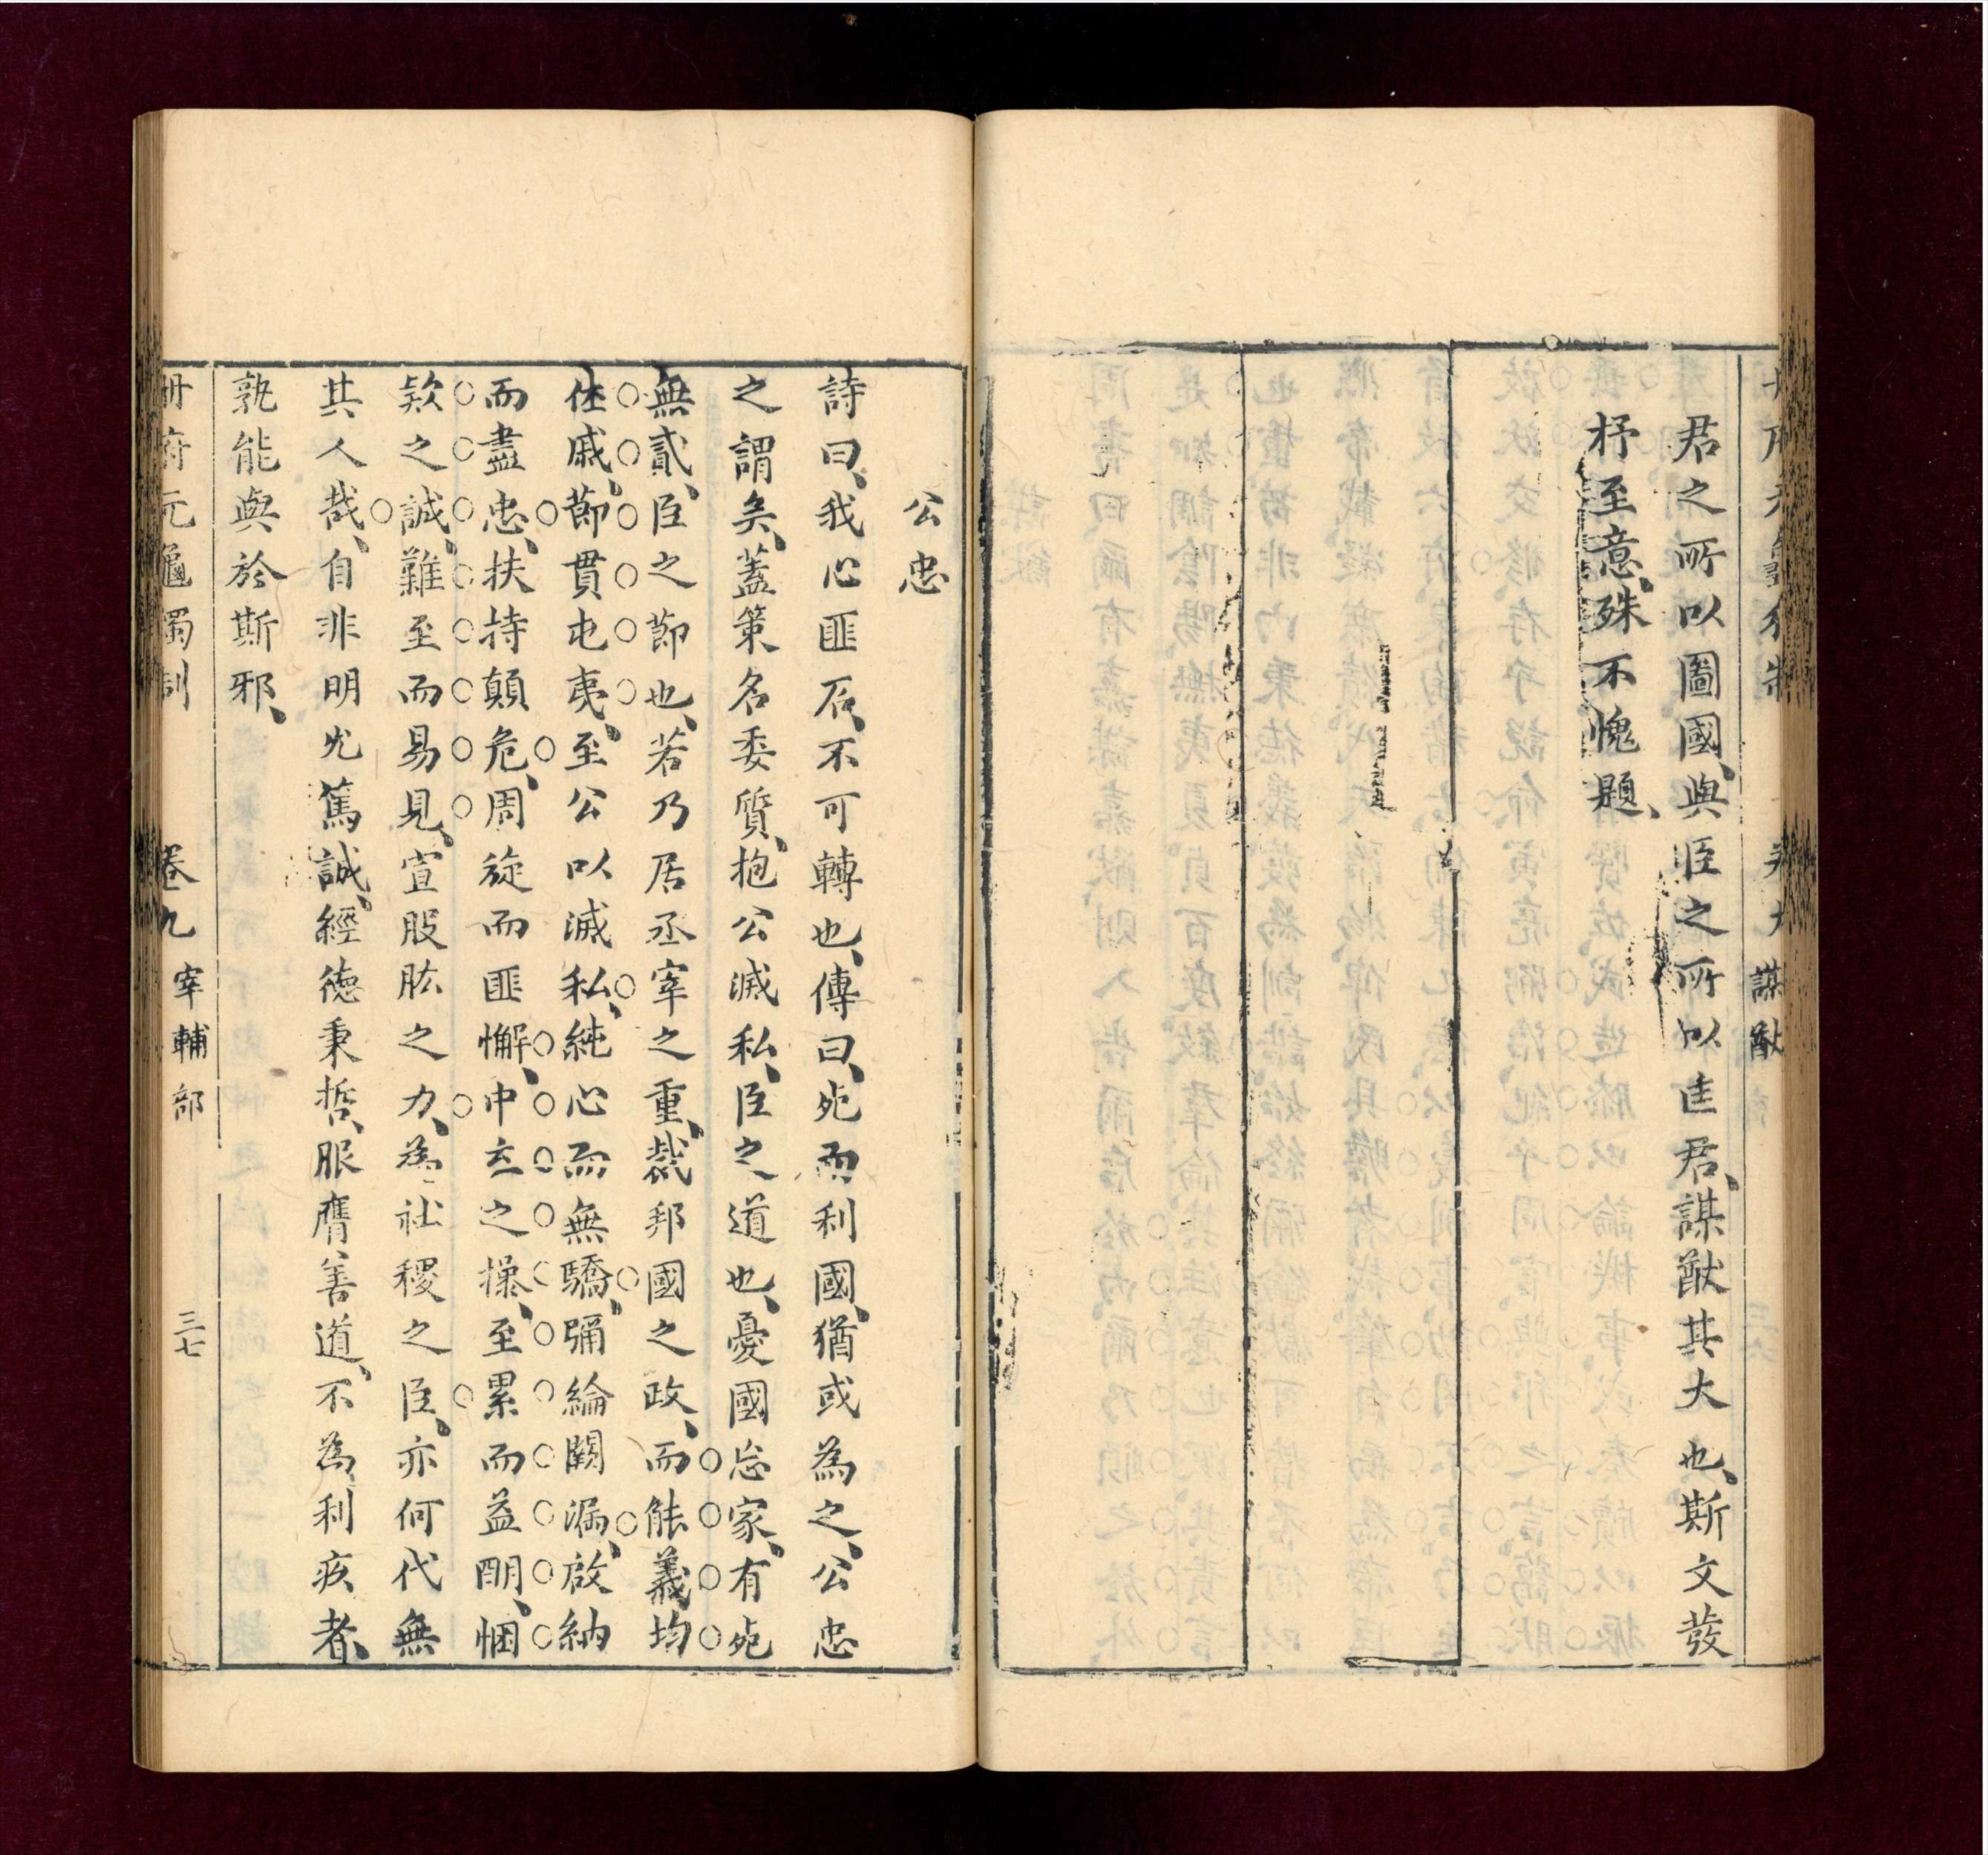 冊府元龜獨制 卷九 謀猷
君之所以圖國、與臣之所以匡君、謀猷其大也、斯文發
杼至意、殊不愧題、
公忠
詩曰、我心匪石、不可轉也、傳曰、死而利國、猶或為之、公忠
之謂矣、蓋策名委質、抱公滅私、臣之道也、憂國忘家、有死
無貳、臣之節也、若乃居丞宰之重、裁邦國之政、而能義均
休戚、節貫屯夷、至公以滅私、純心而無驕、彌綸闕漏、啟納
而盡忠、扶持顛危、周旋而匪懈、中立之操、至累而益明、悃
欵之誠、難至而易見、宣股肱之力、為社稷之臣、亦何代無
其人哉、自非明允篤誠、經德秉哲、服膺善道、不為利疚者、
孰能與於斯邪、
冊府元龜獨制 卷九 宰輔部 三七